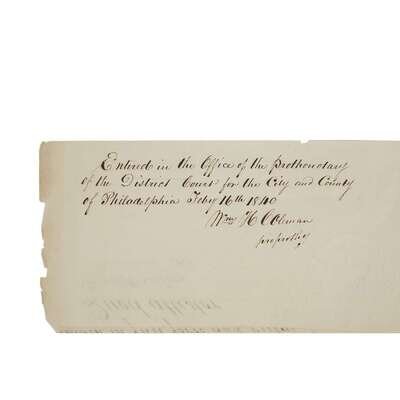 Entered in the Office of the Prothonotary
of the District Court for the City and County
of Philadelphia Feby 16th 1840
Wm H Coleman
pro prothy